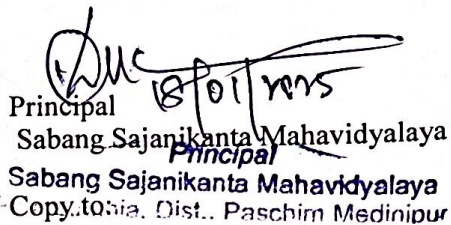 18/01/2025
Principal
Sabang Sajanikanta Mahavidyalaya
Principal
Sabang Sajanikanta Mahavidyalaya
Copy to:
Dist.. Paschim Medinipur